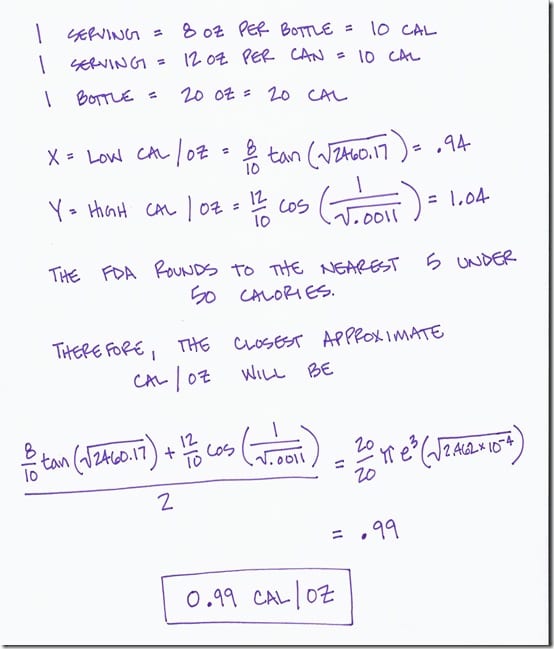 1 SERVING = 8 OZ PER BOTTLE = 10 CAL
1 SERVING = 12 OZ PER CAN = 10 CAL
1 BOTTLE = 20 OZ = 20 CAL
X = LOW CAL/OZ = 8/10 tan(√2460.17) = .94
Y = HIGH CAL/OZ = 12/10 cos(1/√.0011) = 1.04
THE FDA ROUNDS TO THE NEAREST 5 UNDER
50 CALORIES.
THEREFORE, THE CLOSEST APPROXIMATE
CAL/OZ WILL BE
(8/10 tan(√2460.17) + 12/10 cos(1/√.0011))/2 = 20/20 π e³(√2.462×10⁻⁴)
= .99
0.99 CAL/OZ